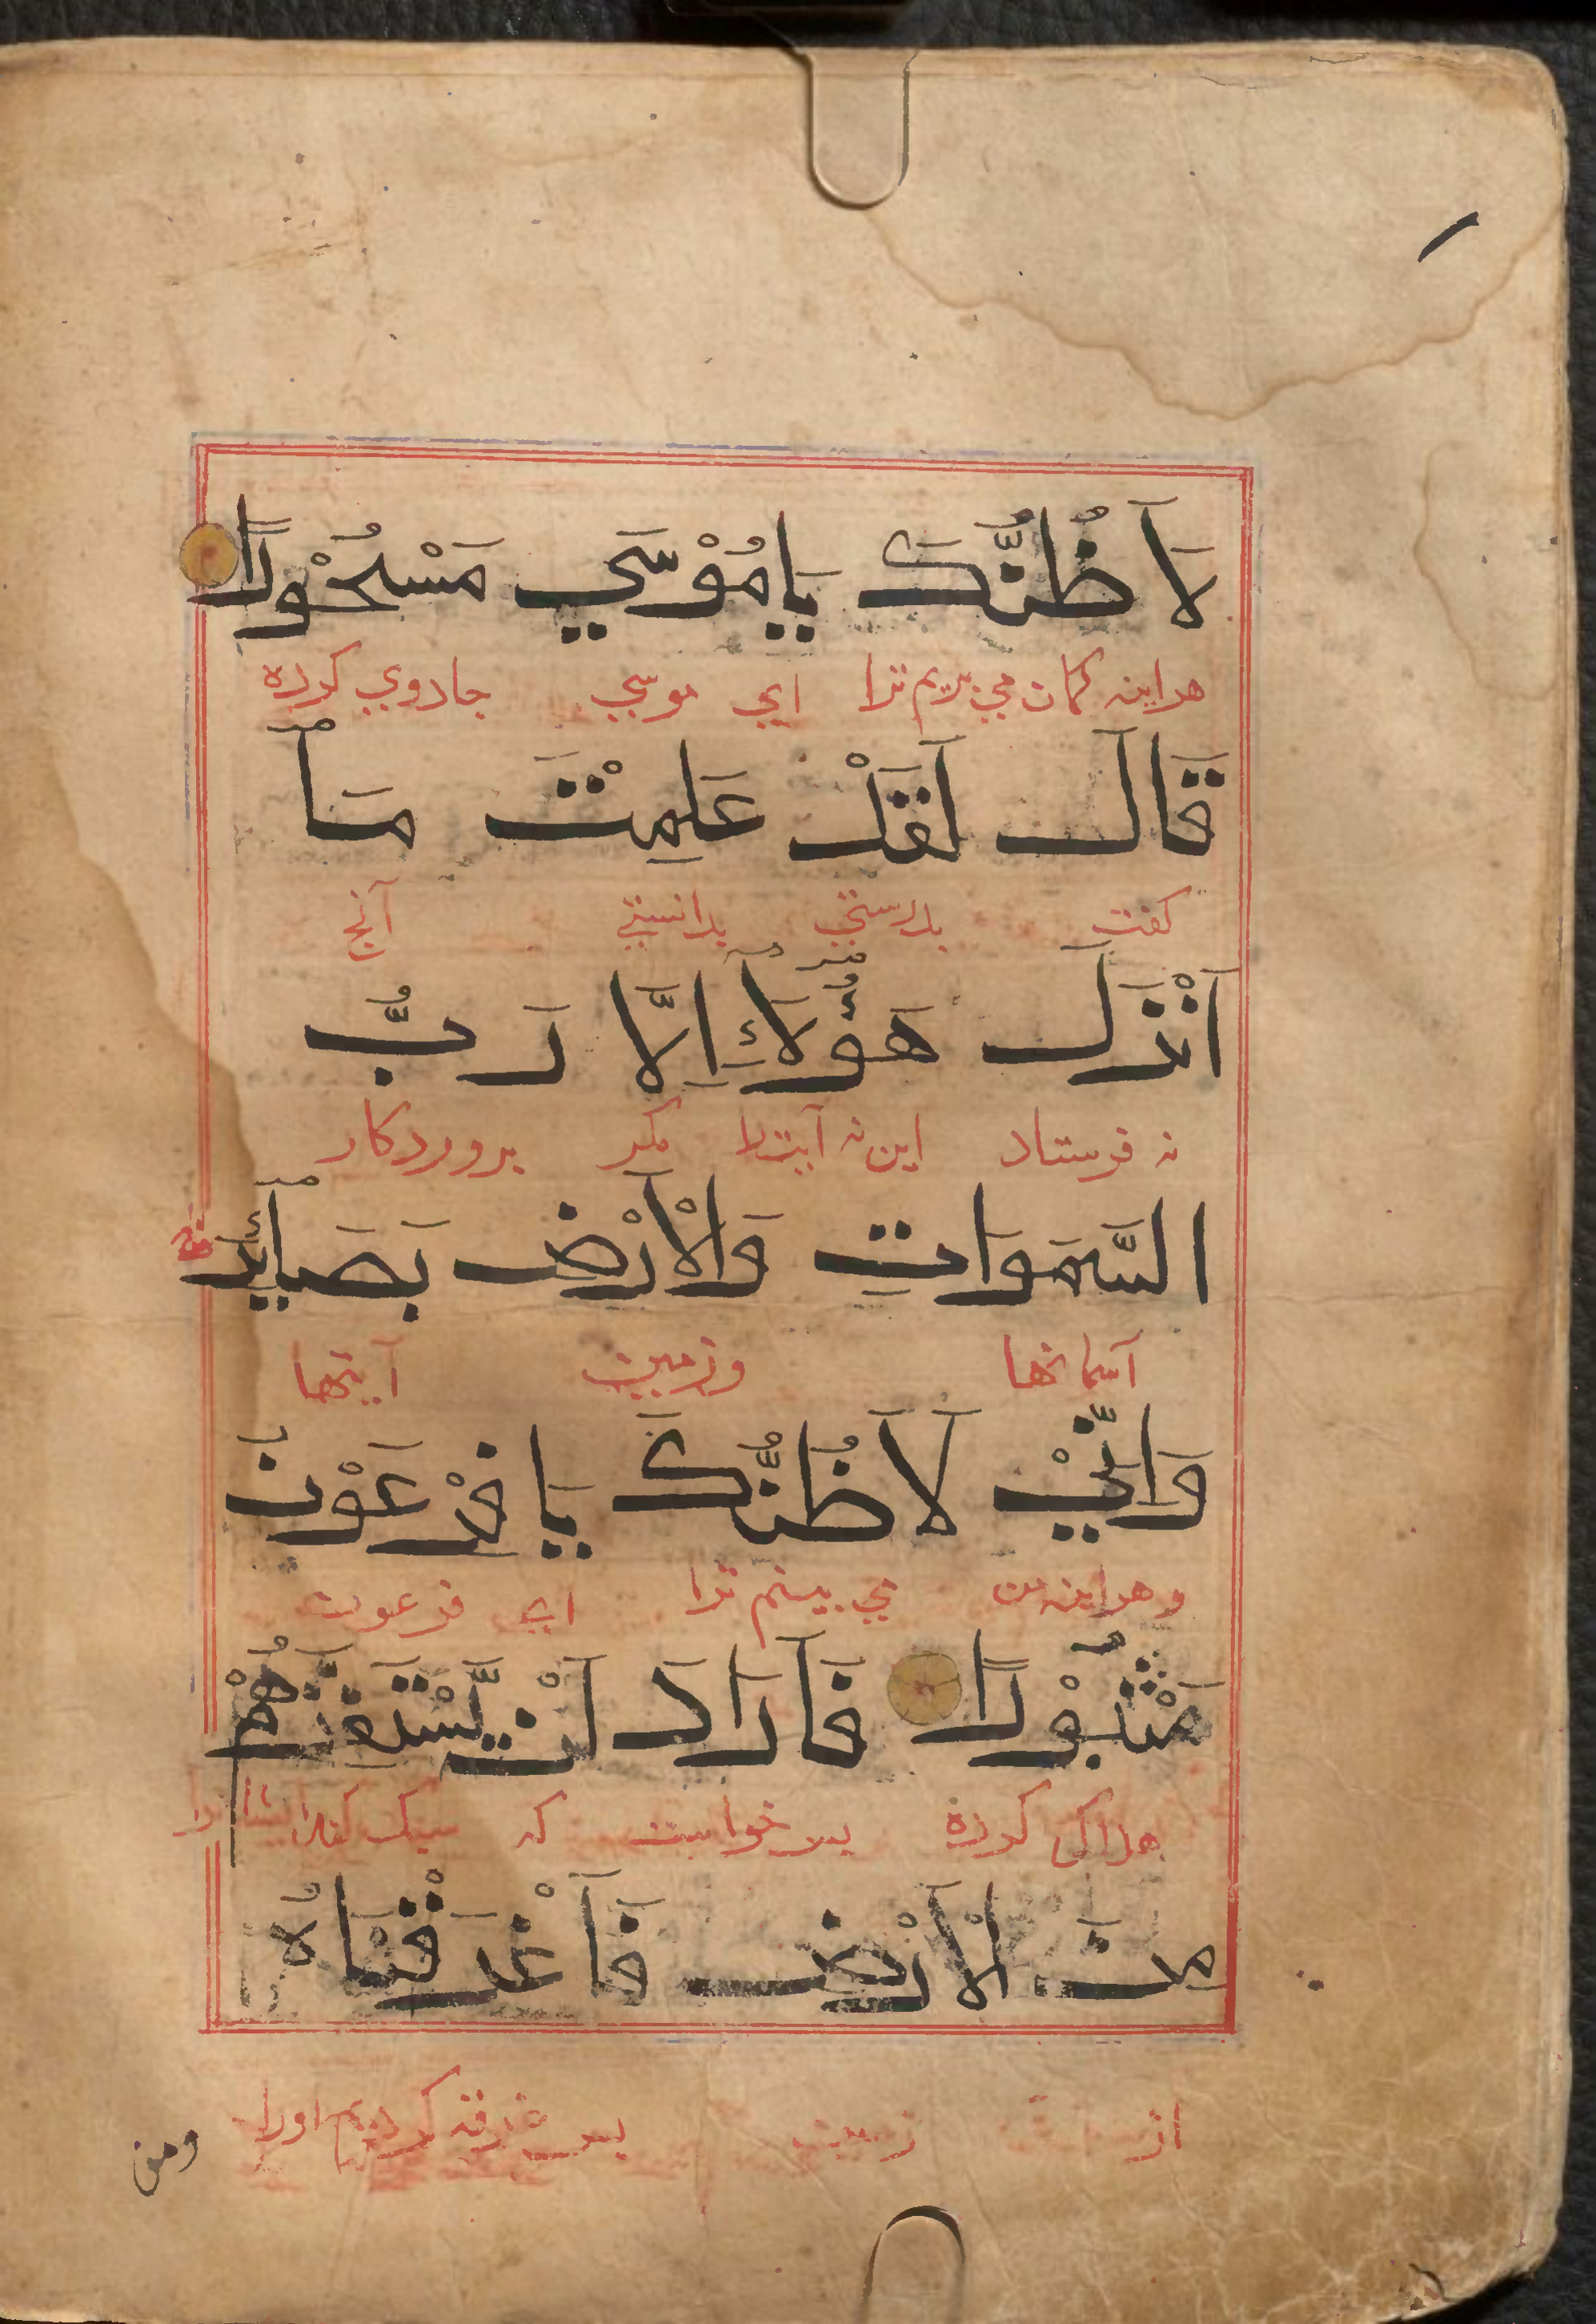 لَاَظُنُّكَ يَامُوْسَي مَسْحُوْرًا
هراینه کمان می بریم ترا ای موسی جادوی کرده
قَالَ لَقَدْ عَلِمْتَ مَآ
کفت بدرستی بدانستی آنچ
اَنْزَلَ هَؤُلَآءِ اِلَّا رَبُّ
نه فرستاد این نه آیترا مکر پروردکار
السَّمَوَاتِ وَالْاَرْضِ بَصَآئِرَ
آسمانها وزمین آیتها
وَاِنِّيْ لَاَظُنُّكَ يَافِرْعَوْنَ
وهراینه من می بینم ترا ای فرعون
مَثْبُوْرًا فَاَرَادَ اَنْ يَّسْتَفِزَّهُمْ
هلاک کرده پس خواست که سبک کند ایشانرا
مِنَ الْاَرْضِ فَاَغْرَقْنَاهُ
از زمین پس غرقه کردیم اورا
ومن